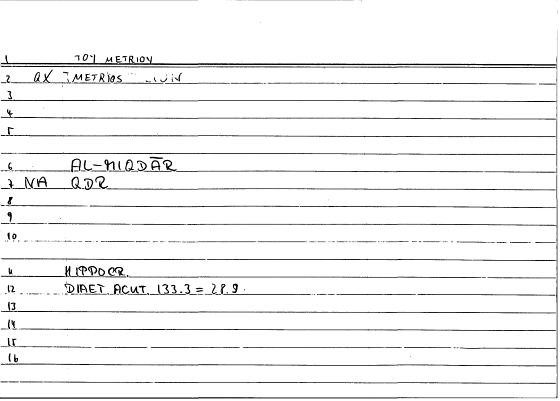 1 ΤΟΥ ΜΕΤRΙΟΥ
2 QX METRIOS
3
4
5
6 AL-MIQDĀR
7 NA QDR
8
9
10
11 HIPPOCR.
12 DIAET. ACUT. 133.3 = 28.9.
13
14
15
16